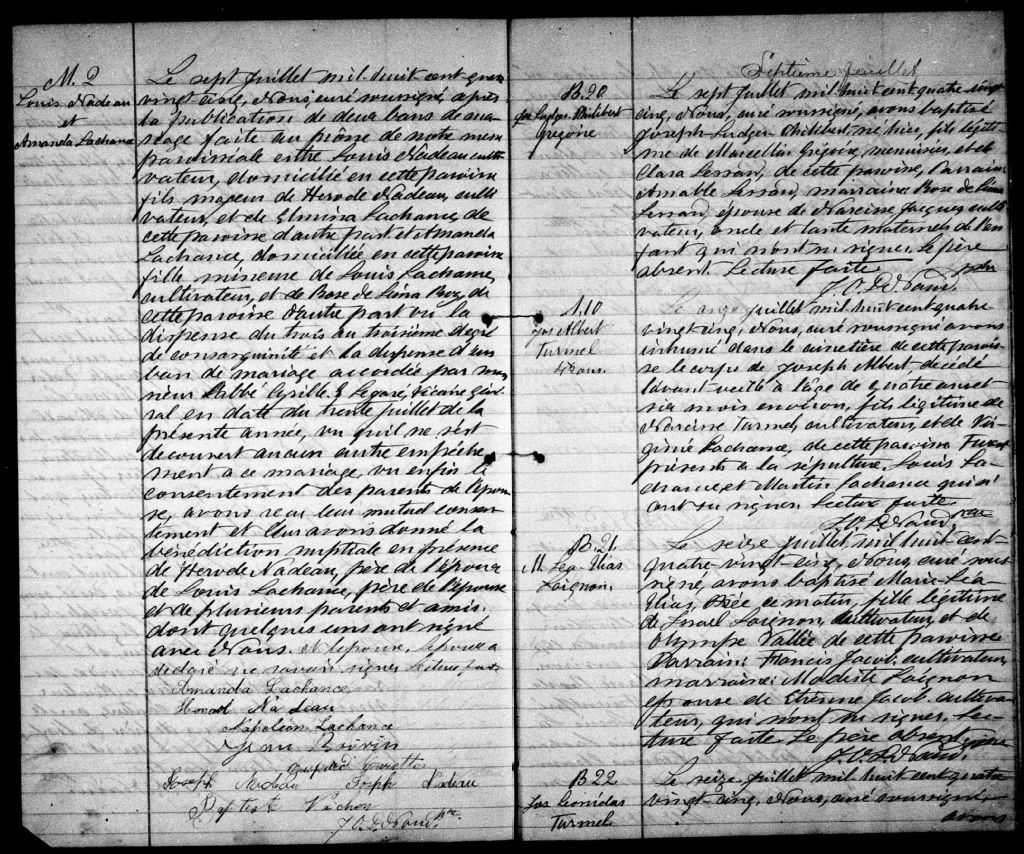 M. 2
Louis Nadeau
et
Amanda Lachance
Le sept Juillet mil-huit cent-quatre
vingt cinq, Nous, curé soussigné, après
la publication de deux bans de ma-
riage faite au prône de notre messe
paroissiale entre Louis Nadeau culti-
vateur, domicilié en cette paroisse
fils majeur de Hervde Nadeau, culti-
vateur, et de Elmina Lachance, de
cette paroisse d'autre part et Amanda
Lachance, domiciliée en cette paroisse
fille mineure de Louis Lachance,
cultivateur, et de Rose de Lima Roy, de
cette paroisse d'autre part vu la
dispense du trois au troisième degré
de consanguinité et la dispense d'un
ban de mariage accordée par mon-
sieur l'abbé Cyrille E Légaré, Vicaire géné-
ral en date du trente juillet de la
présente année, vu qu'il ne s'est
découvert aucun autre empêche-
ment à ce mariage, vu enfin le
consentement des parents de l'épou-
se, avons reçu leur mutuel consen-
tement et leur avons donné la
bénédiction nuptiale en présence
de Hervde Nadeau, père de l'époux
de Louis Lachance, père de l'épouse
et de plusieurs parents et amis.
dont quelques uns ont signé
avec Nous. et l'épouse. l'époux a
déclaré ne savoir signer. Lecture faite
Amanda Lachance
Nadeau
Napoléon Lachance
Jean Boivin
Joseph Nadeau Joseph Nadeau
Baptist Vachon
Ptre
Septième feuillet
B. 20
Jos Ludger Philibert
Grégoire
Le sept Juillet mil huit cent quatre vingt
cinq, Nous, curé soussigné, avons baptisé
Joseph-Ludger Philibert, né hier, fils légiti-
me de Marcellin Grégoire, menuisier, et de
Clara Lessard, de cette paroisse, Parrain
Amable Lessard, marraine Rose de Lima
Lessard, épouse de Narcisse Jacques culti-
vateur, oncle et tante maternels de l'en-
fant qui n'ont su signer. Le père
absent. Lecture faite
ptre
S. 10
Jos Albert
Turmel
4 ans.
Le onze juillet mil huit cent quatre
vingt cinq, Nous, curé soussigné avons
inhumé dans le cimetière de cette parois-
se le corps de Joseph Albert décédé
l'avant veille à l'âge de quatre ans et
six mois environ, fils légitime de
Narcisse Turmel, cultivateur, et de Vir-
ginie Lachance, de cette paroisse Furent
présents à la sépulture, Louis La-
chance, et Martin Lachance qui n'
ont su signer. Lecture faite
Ptre
B. 21.
M. Léa-Élias
Loignon.
Le seize juillet mil huit cent-
quatre-vingt-cinq, Nous, curé sous-
signé, avons baptisé Marie-Léa
Élias, née ce matin, fille légitime
de Israël Loignon, cultivateur, et de
Olympe Vallée de cette paroisse
Parrain: Francis Jacob. cultivateur,
marraine: Modiste Loignon
épouse de Etienne Jacob. cultiva-
teur, qui n'ont su signer. Lec-
ture faite. Le père absent
B 22
Jos Leonidas
Turmel
Le seize juillet mil huit cent quatre
vingt-cinq, Nous, curé soussigné,
avons